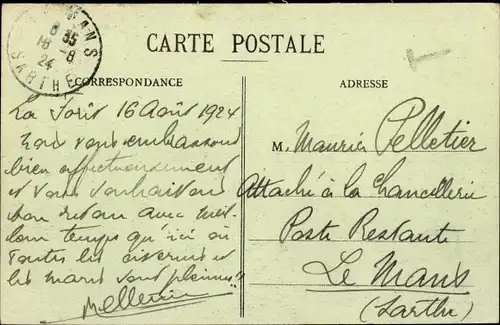 MANS
8 35
16 -8
24
SARTHE
CARTE POSTALE
CORRESPONDANCE
ADRESSE
16 Août 1924
vous embrassons
bien affectueusement
et vous souhaitons
bon retour avec meil-
leur temps qu'ici où
toutes les citernes et
les mares sont pleines!!
M. Maurice Pelletier
Attaché à la Chancellerie
Poste Restante
Le Mans
(Sarthe)